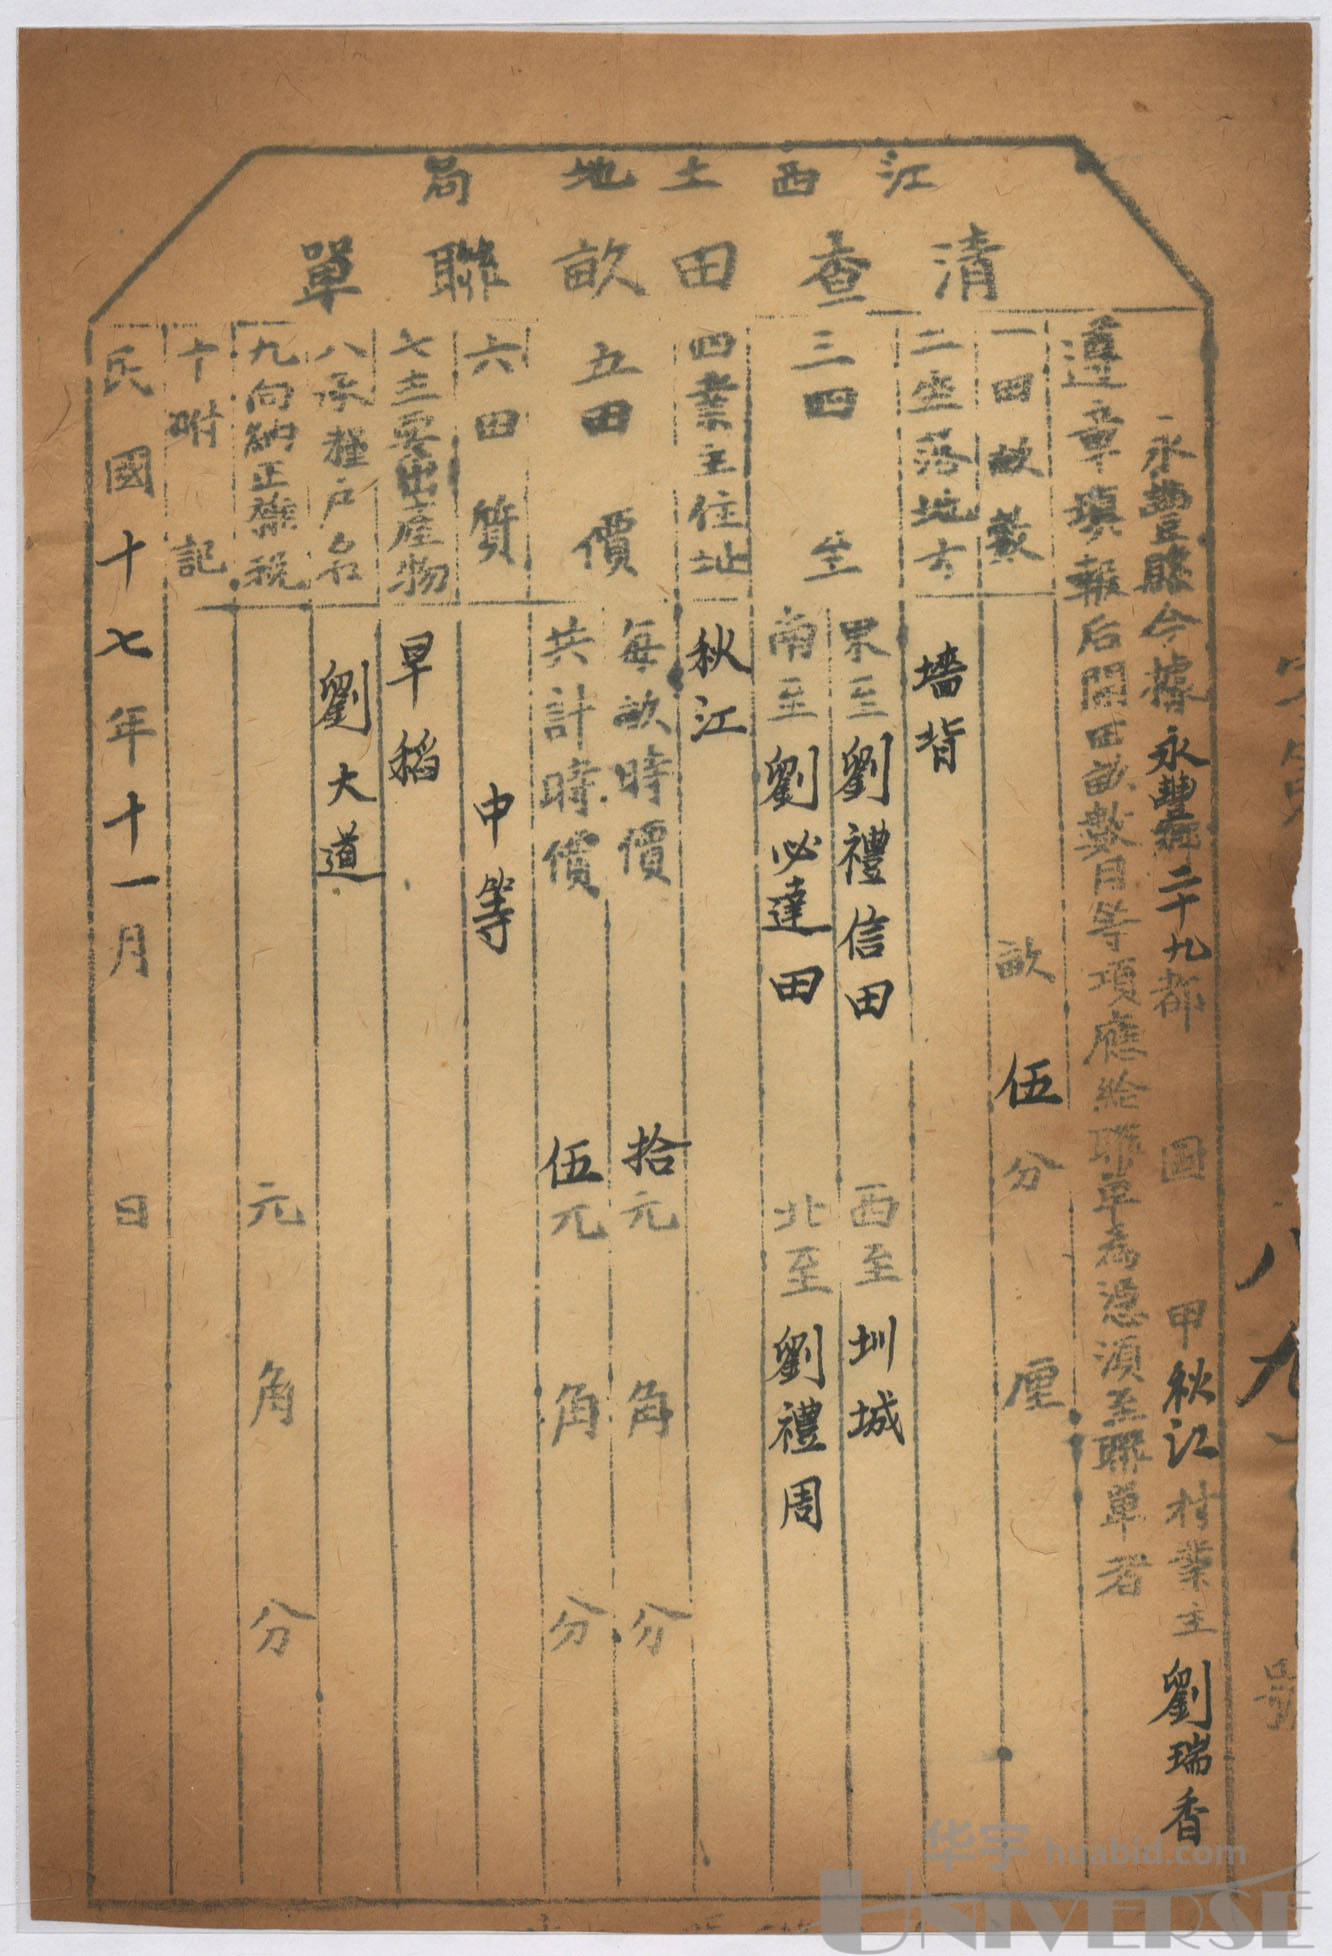 江西土地局
清查田畝聯單
永豐縣今據永豐鄉二十九都 圖 甲秋江村業主劉瑞香
遵章填報后開田畝數目等項應給聯單為憑須至聯單者
一田畝數 畝伍分 厘
二坐落地方 墻背
三四至 東至劉禮信田 西至圳城
南至劉必達田 北至劉禮周
四業主住址 秋江
五田價 每畝時價 拾元 角 分
共計時價 伍元 角 分
六田質 中等
七主要出產物 早稻
八承種户名 劉大道
九向納正雜税 元 角 分
十附記
民國十七年十一月 日
號
华宇 huabid.com
UNIVERSE